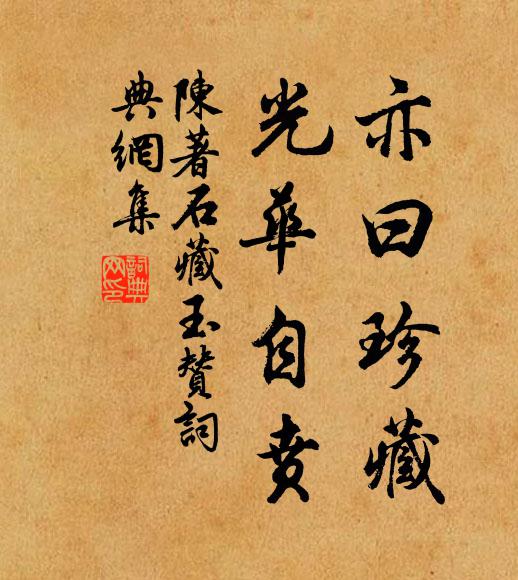 亦曰珍藏
光華自賁
陳著石藏玉贊詞
典網集
詞典網印